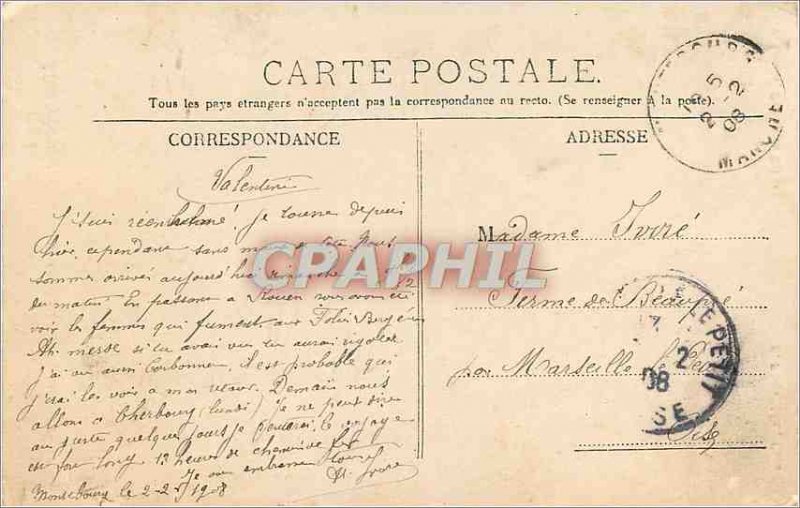 CARTE POSTALE.
Tous les pays etrangers n'acceptent pas la correspondance au recto. (Se renseigner à la poste).
CORRESPONDANCE
Valentine
Je suis je tourne depuis
hier, cependant sans
sommes arrivés aujourd'hui dimanche à 2
du matin. En passant à Rouen nous avons été
voir les femmes qui fument aux Folies Bergère
Ah. si tu avais vu tu aurais rigoler
J'ai vu aussi il est probable que
j'irai les voir à mon retour. Demain nous
allons à Cherbourg (lundi) Je ne peut dire
au juste quelques jours je le voyage
est fort long 13 heures de chemin de fer
Je vous embrasse tous
Ivoré
Montebourg le 2-2-1908
ADRESSE
Madame Ivoré
Ferme de Beaupré
par Marseille le Petit
Oise
MONTEBOURG MANCHE
2 - 2
08
LE PETIT
2
08
SE
CPAPHIL